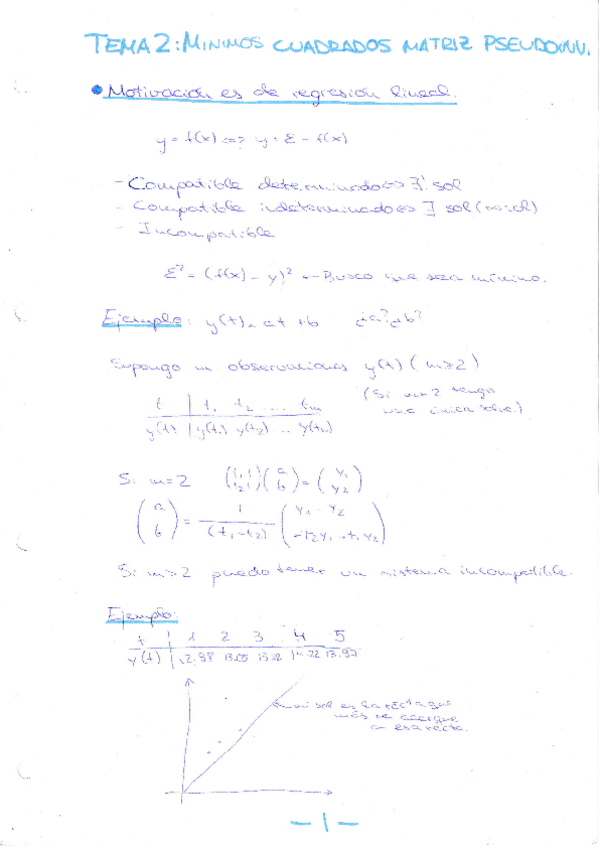 TEMA 2: MINIMOS CUADRADOS MATRIZ PSEUDOINV.
• Motivación es de regresión lineal.
y = f(x) ⇔ y + ε = f(x)
- Compatible determinado ⇔ ∃! sol
- Compatible indeterminado ⇔ ∃ sol (∞ sol)
- Incompatible
ε² = (f(x) - y)² ← Busco que sea mínimo.
Ejemplo: y(t) = at + b ¿a? ¿b?
Supongo m observaciones y(t) (m≥2)
(Si m=2 tengo
una única
t | t₁ t₂ .... tm
y(t) | y(t₁) y(t₂) ... y(t₂)
Si m=2 (t₁ 1; t₂ 1)(a; b) = (y₁; y₂)
(a; b) = 1/(t₁-t₂) (y₁ - y₂; -t₂y₁ - t₁y₂)
Si m>2 puedo tener un sistema incompatible.
Ejemplo:
t | 1 2 3 4 5
y(t) | 13.97
mi sol es la recta que
más se acerque
a esa recta.
- 1 -